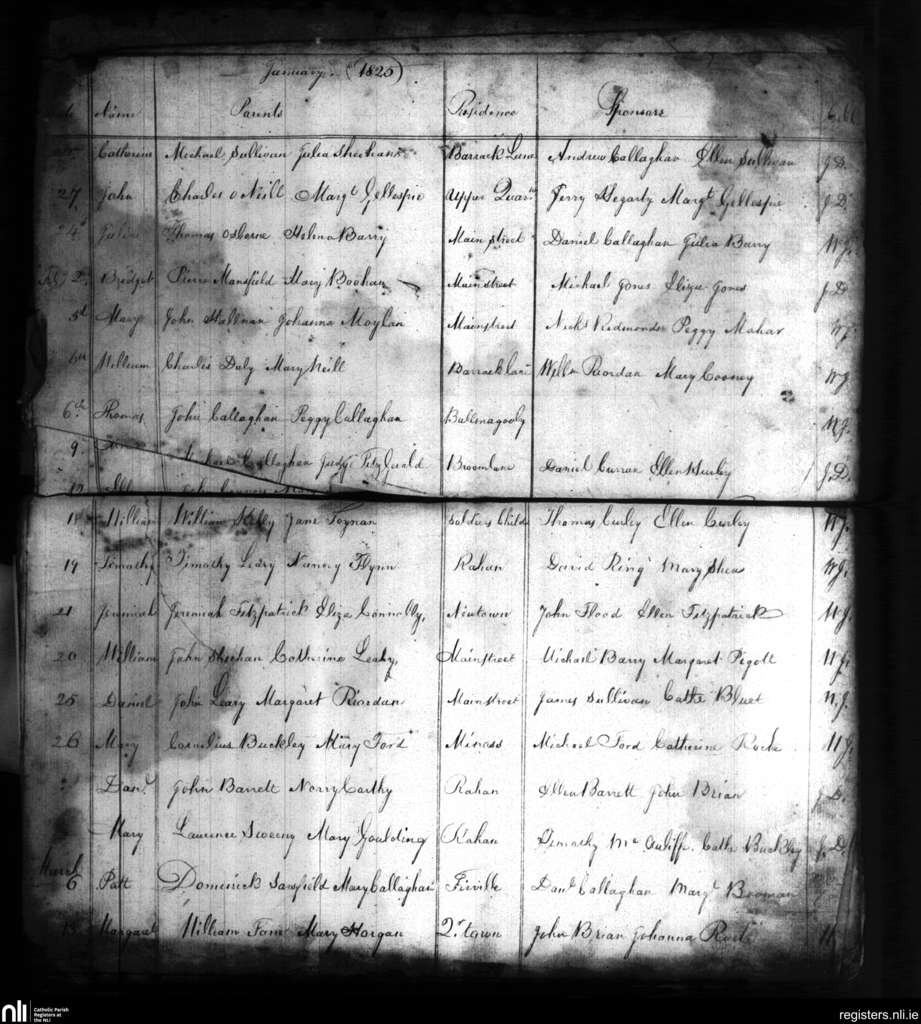 January. (1825)
Name Parents Residence Sponsors
Catherine Michael Sullivan Julia Sheehan Barrack Lane Andrew Callaghan Ellen Sullivan J.D.
27 John Charles o Neill Margt Gillespie Upper Jerry Hegarty Margt Gillespie J.D.
Thomas Osborne Helena Barry Main street Daniel Callaghan Julia Barry
2 Bridget Pierce Mansfield Mary Mainstreet Michael Jones Eliza Jones J.D
5d Mary John Johanna Moylan Mainstreet Nichs Redmonds Peggy Mahar
6th William Charles Daly Mary Neill Barrack lane Willm Riordan Mary Cooney
6th Thomas John Callaghan Peggy Callaghan Ballinagooly
9 Callaghan Judy FitzGerald Broomlane Daniel Curran Ellen Hurley J.D.
12
18 William William Jane Soldiers Child Thomas Curley Ellen Curley
19 Timothy Timothy Leary Nancy Flynn Rahan David Ring Mary Shea
21 Jeremiah Jeremiah Fitzpatrick Eliza Connolly, Newtown John Flood Ellen Fitzpatrick
20 William John Sheehan Catherine Leahy, Mainstreet Michael Barry Margaret Pigott
25 Daniel John Leary Margaret Riordan Mainstreet James Sullivan Cathe Bluet
26 Mary Cornelius Buckley Mary Ford Minass Michael Ford Catherine Rocke
Danl John Barrett Norry Carthy Rahan Ellen Barrett John Brian J.D.
Mary Laurence Sweeny Mary Goulding Rahan Timothy Mc Auliff. Cathe Buckley J.D.
March
6 Patt Dominick Sarsfield Mary Callaghan Firville Danl Callaghan Margt Brosnan
13 Margaret William Mary Horgan Qr. town John Brian Johanna
nli
Catholic Parish
Registers at
the NLI
registers.nli.ie